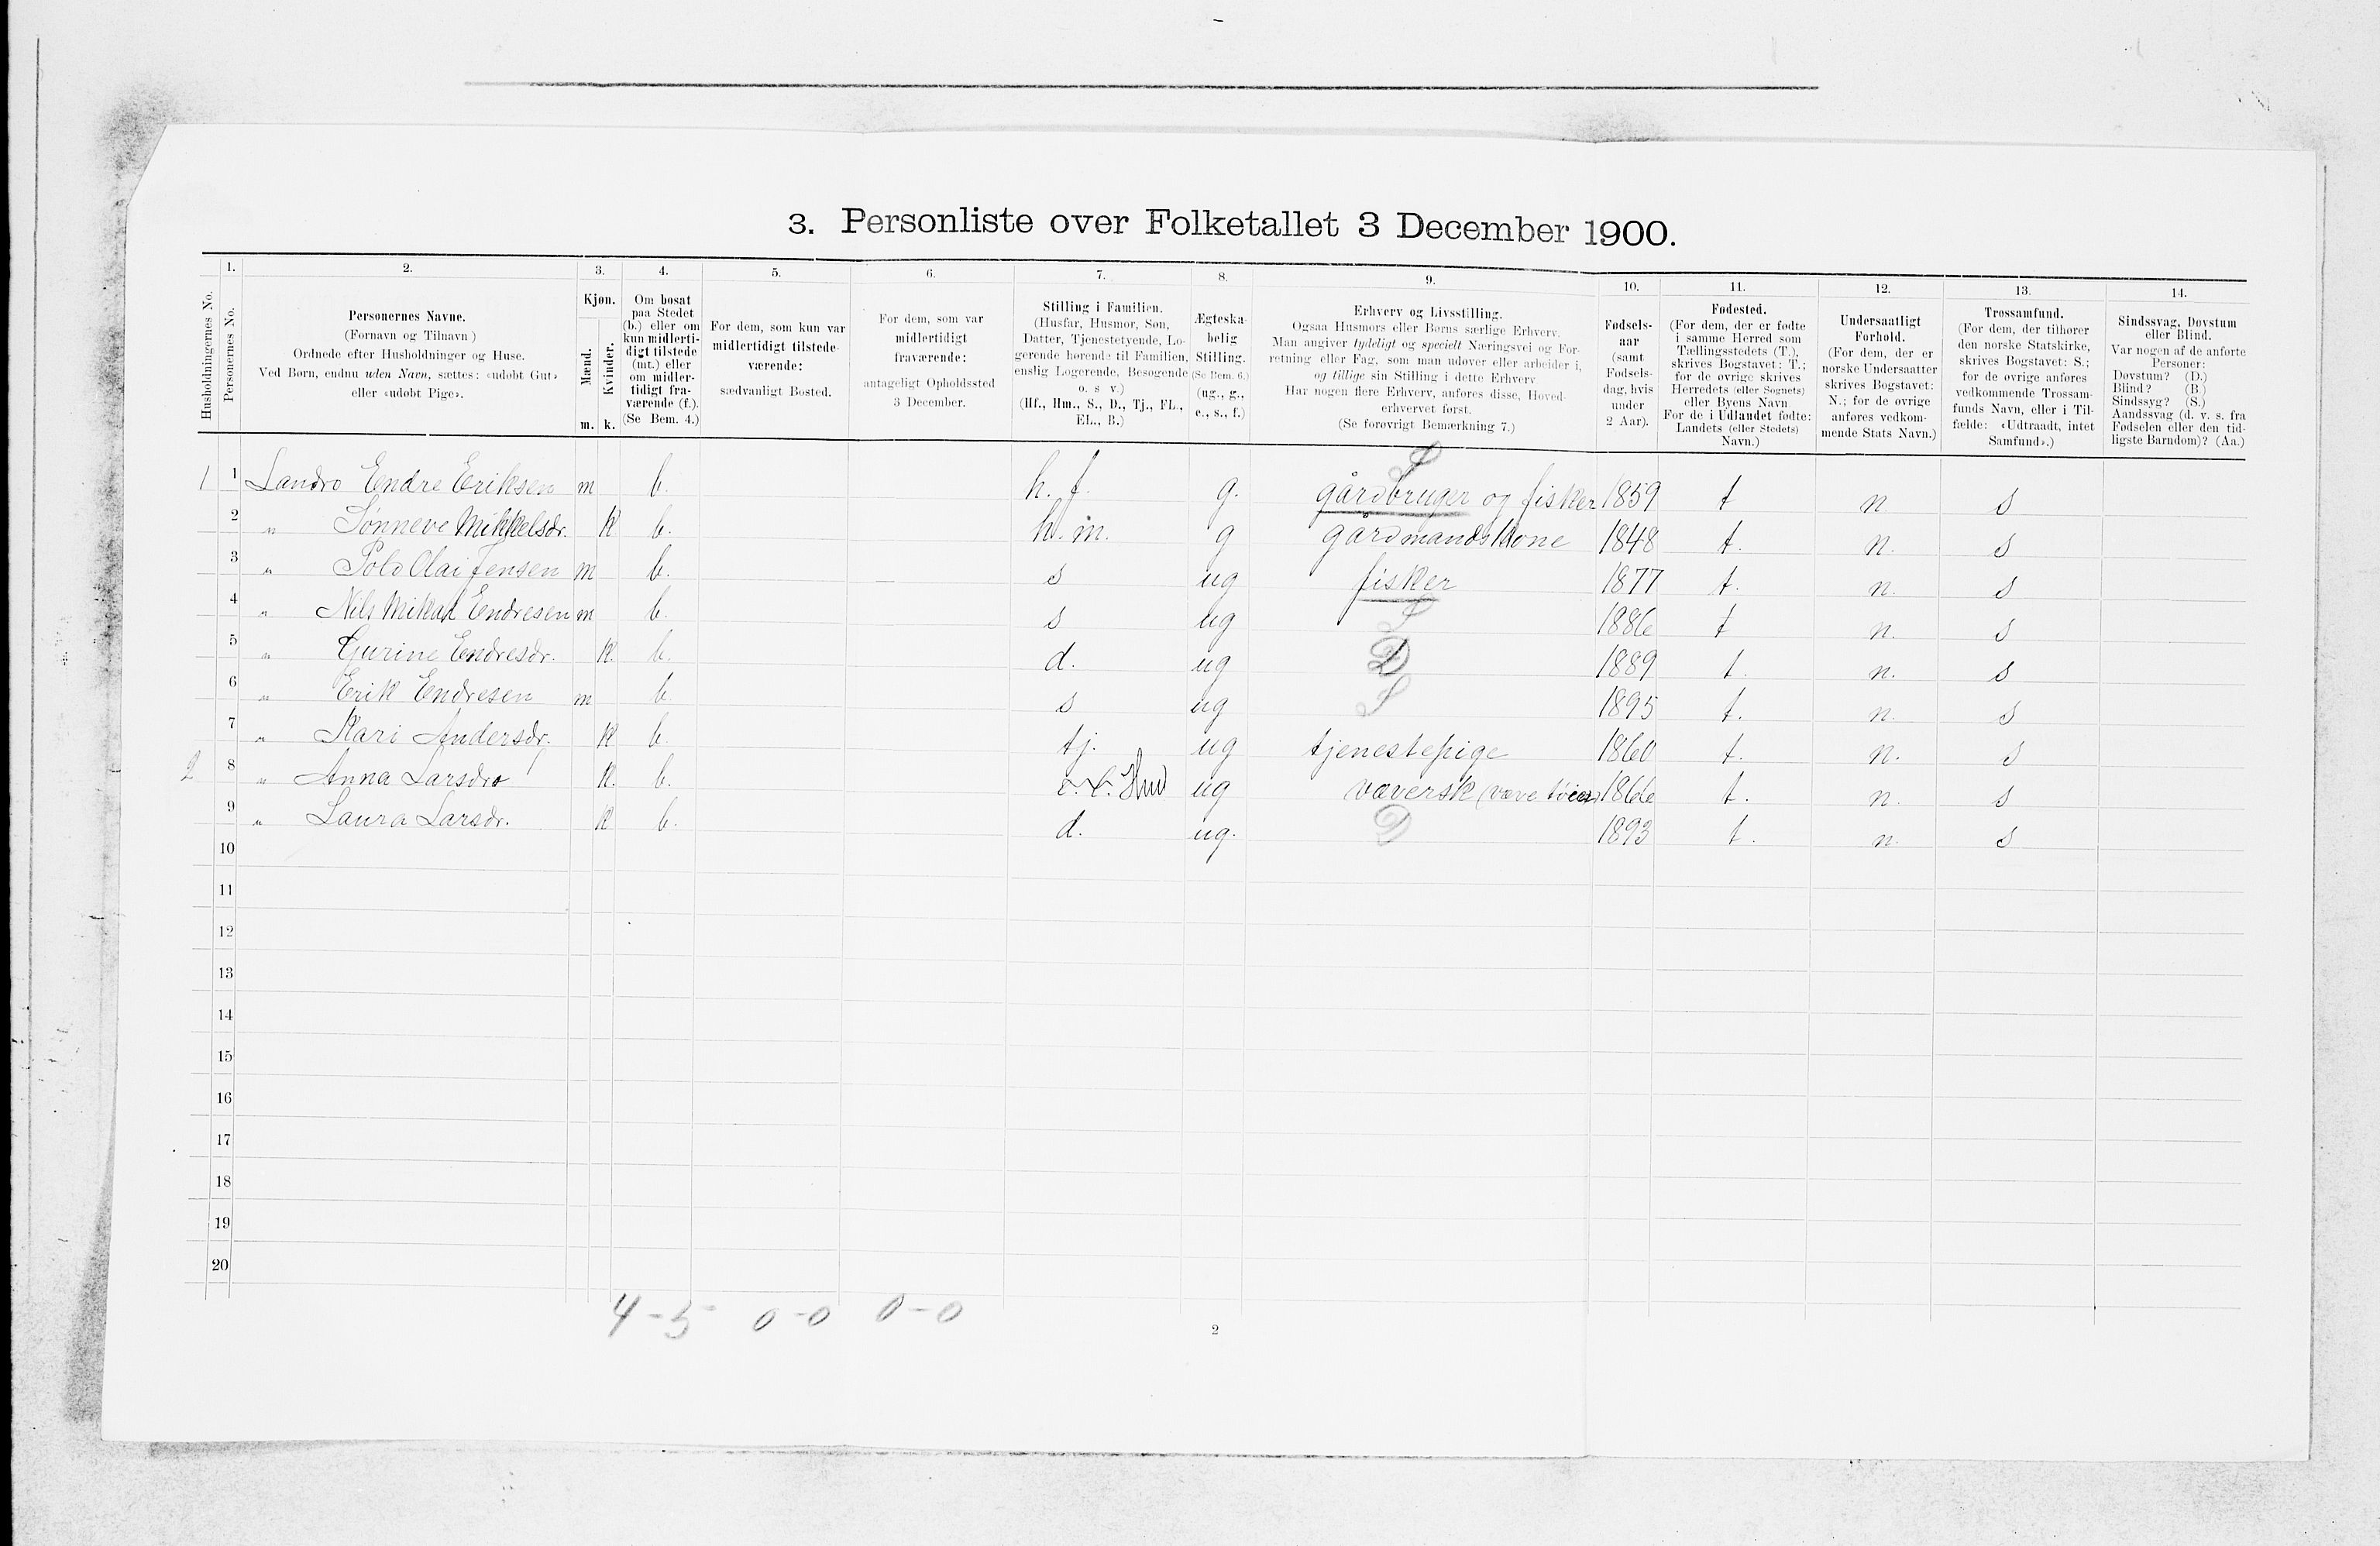 3. Personliste over Folketallet 3 December 1900.
1. 2. 3. 4. 5. 6. 7. 8. 9. 10. 11. 12. 13. 14.
Husholdningernes No.
Personernes No.
Personernes Navne.
(Fornavn og Tilnavn)
Ordnede efter Husholdninger og Huse.
Ved Børn, endnu uden Navn, sættes: «udøbt Gut»
eller «udøbt Pige».
Kjøn.
Mænd.
Kvinder.
m. k.
Om bosat
paa Stedet
(b.) eller om
kun midlerti-
digt tilstede
(mt.) eller
om midler-
tidigt fra-
værende (f.).
(Se Bem. 4.)
For dem, som kun var
midlertidigt tilstede-
værende:
sædvanligt Bosted.
For dem, som var
midlertidigt
fraværende:
antageligt Opholdssted
3 December.
Stilling i Familien.
(Husfar, Husmor, Søn,
Datter, Tjenestetyende, Lo-
gerende hørende til Familien,
enslig Logerende, Besøgende
o. s. v.)
(Hf., Hm., S., D., Tj., FL.,
EL., B.)
Ægteska-
belig
Stilling.
(Se Bem. 6.)
(ug., g.,
e., s., f.)
Erhverv og Livsstilling.
Ogsaa Husmors eller Børns særlige Erhverv.
Man angiver tydeligt og specielt Næringsvei og For-
retning eller Fag, som man udøver eller arbeider i,
og tillige sin Stilling i dette Erhverv.
Har nogen flere Erhverv, anføres disse, Hoved-
erhvervet først.
(Se forøvrigt Bemærkning 7.)
Fødsels-
aar
(samt
Fødsels-
dag, hvis
under
2 Aar).
Fødested.
(For dem, der er fødte
i samme Herred som
Tællingsstedets (T.),
skrives Bogstavet: T.;
for de øvrige skrives
Herredets (eller Sognets)
eller Byens Navn
For de i Udlandet fødte:
Landets (eller Stedets)
Navn.)
Undersaatligt
Forhold.
(For dem, der er
norske Undersaatter
skrives Bogstavet:
N.; for de øvrige
anføres vedkom-
mende Stats Navn.)
Trossamfund.
(For dem, der tilhører
den norske Statskirke,
skrives Bogstavet: S.;
for de øvrige anføres
vedkommende Trossam-
funds Navn, eller i Til-
fælde: «Udtraadt, intet
Samfund».)
Sindssvag, Døvstum
eller Blind.
Var nogen af de anførte
Personer:
Døvstum? (D.)
Blind? (B.)
Sindssyg? (S.)
Aandssvag (d. v. s. fra
Fødselen eller den tid-
ligste Barndom)? (Aa.)
S
1 1 Landro Endre Eriksen m b. h. f. g. gårdbruger og fisker 1859 t n s
2 " Sønneve Mikkelsdr. k b. h. m. g gårdmandskone 1848 t. n. s
3 " Olai Jensen m b. s ug fisker 1877 t. n. s
4 " Nils Endresen m b. s ug S 1886 t n. s
5 " Gurine Endresdr. k. b. d. ug D 1889 t. n. s
6 " Erik Endresen m b s ug S 1895 t. n. s
7 " Kari Andersdr. k b. tj. ug tjenestepige 1860 t. n. s
2 8 " Anna Larsdr k. b. ug væversk (væve tøier) 1866 t. n. s
9 " Laura Larsdr. k b. d. ug. D 1893 t. n. s
10
11
12
13
14
15
16
17
18
19
20
4-5 0-0 0-0
2